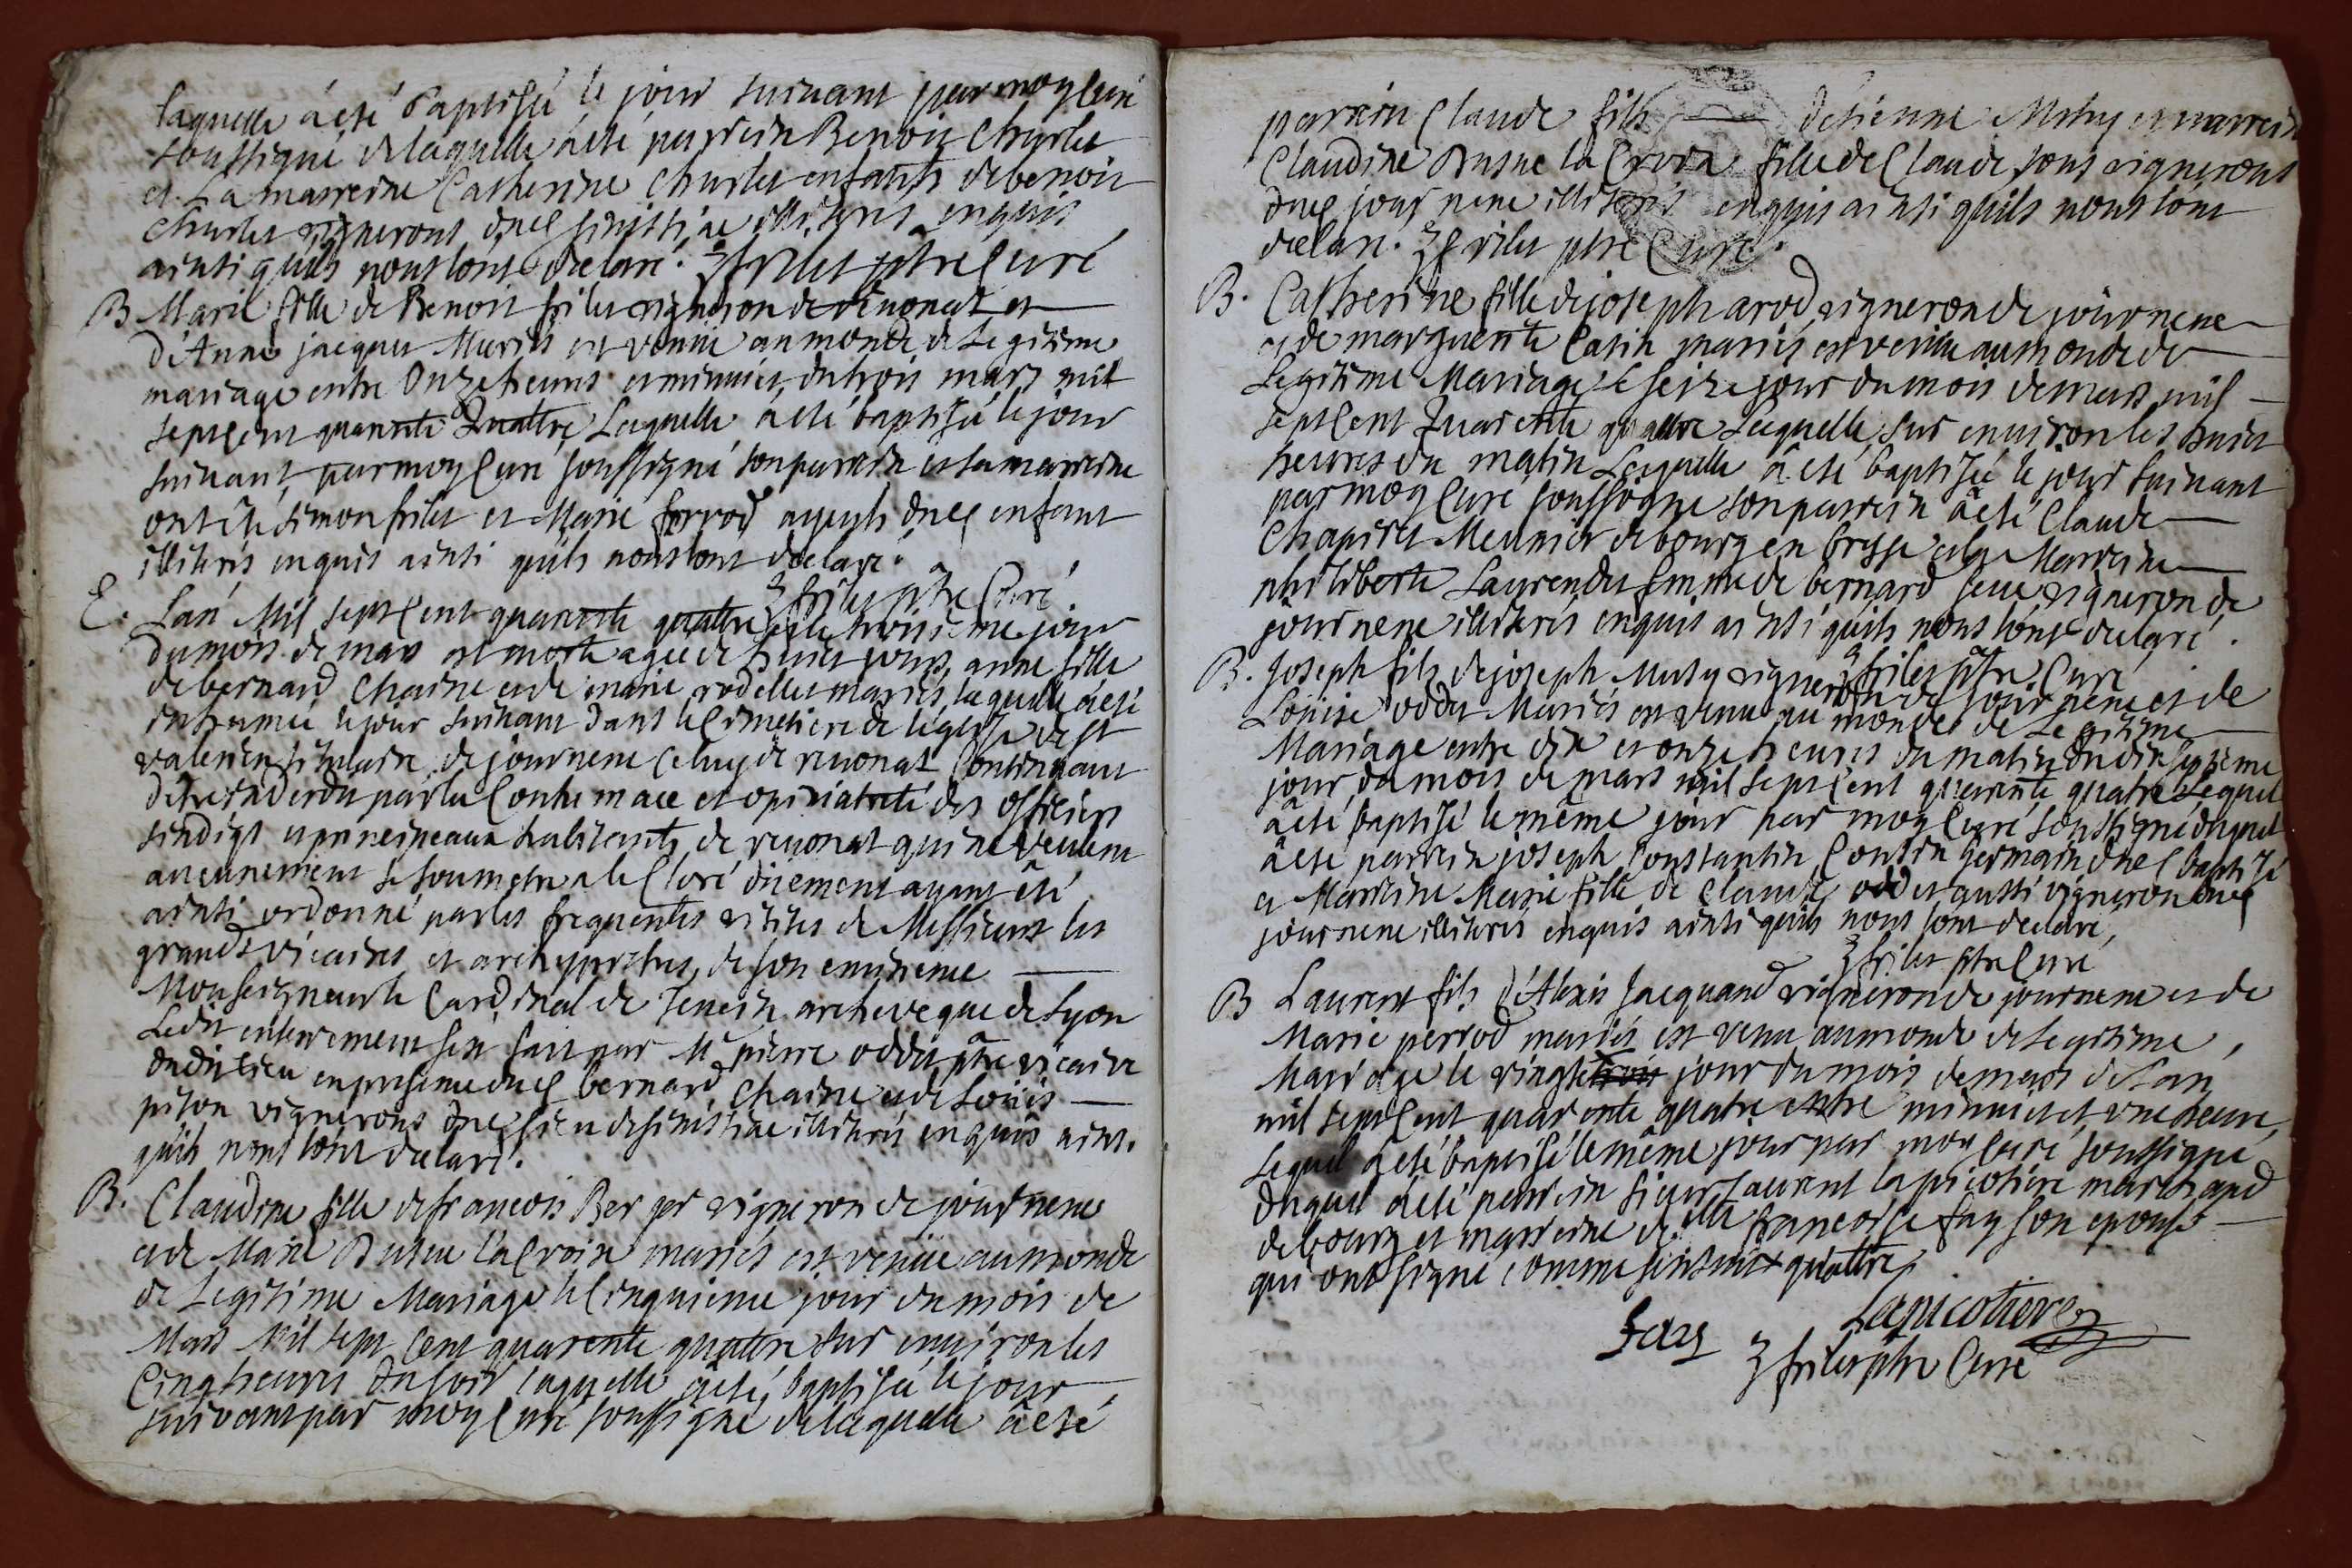 laquelle à eté Baptisée le jour suivant par moy Curé
soussigné de laquelle à eté parrein Benoit Charlet
et La marreine Catherine Charlet enfants de benoit
Charlet vignerons illiterés enquis
ainsi quils nous l'ont declaré. frilet ptre Curé
B Marie fille de Benoit frilet vigneron de revonat et
d'Anne jacquet Mariés est venüe au monde de Legitime
mariage entre Onze heures et minuict du trois mars mil
sept Cent quarante Quattre Laquelle à eté baptisée le jour
suivant par moy Curé soussigné son parrein et sa marreine
ont été simon frilet et Marie perrod ayeuls dud enfant
illiterés enquis ainsi quils nous l'ont declaré.
frilet ptre Curé
E. L'an Mil sept Cent quarante quattre et le troisieme jour
du mois de mars est morte agée de huict jours anne fille
de bernard Chaine et de marie rodellet mariés laquelle à eté
inhumée le jour suivant dans le Cimetiere de l'eglise de st
valerien titulaire de journene Celuy de revonat Continuant
d'etre interdit par la Contumace et opiniatreté des officiers
sindigs et principeaux habitants de revonat qui ne veulent
aucunement se soumettre a le Cloré dûement ayant été
ainsi ordonné par les frequentes visites de Messieurs les
grands vicaires et archyprêtres de son eminence
Monseigneur le Cardinal de Tencin archeveque de Lyon
Ledit enterrement fut fait par Mre pierre oddet ptre vicaire
dudit lieu en presence dud bernard Chaine et de Loüis
piton vignerons illiterés enquis ainsi
quils nous l'ont declaré.
B. Claudine fille de francois Berger vigneron de journene
et de Marie Dusue laCroix mariés est venüe au monde
de Legitime Mariage le Cinquieme jour du mois de
Mars Mil sept Cent quarente quattre sur environ les
Cinq heures du soir laquelle à eté baptisée le jour
suivant par moy Curé soussigné de laquelle à eté
parrein Claude fils d'etienne Mithy et marrein
Claudine Dusue la Croix fille de Claude tous vignerons
dud journene illiterés enquis ainsi quils nous l'ont
declaré. frilet ptre Curé.
B. Catherine fille de joseph arod vigneron de journene
et de marguerite Catin mariés est venüe au monde de
Legitime Mariage le seize jour du mois de mars mil
sept Cent Quarente quattre Laquelle sur environ les huict
heures du matin Laquelle à eté baptisée le jour suivant
par moy Curé soussigné son parrein à eté Claude
Chapiret Meunier de bourg en bresse et la Marreine
philiberte Laurendet femme de bernard vigneron de
journene illiterés enquis ainsi quils nous l'ont declaré.
frilet ptre Curé
B. Joseph fils de joseph Musy vigneron de journene et de
Loüise oddet Mariés est venu au monde de Legitime
Mariage entre dix et onze heures du matin du dix septieme
jour du mois de mars mil sept Cent quarente quatre Lequel
à eté baptisé le même jour par moy Curé soussigné duquel
à eté parrein joseph Constantin Cousin germain dud baptisé
et Marreine Marie fille de Claude oddet aussi vigneron dud
journene illiterés enquis ainsi quils nous l'ont declaré,
frilet ptre Curé
B Laurent fils d'Alexis Jacquand vigneron de journene et de
Marie perrod mariés est venu au monde de Legitime
Mariage le vingt trois jour du mois de mars de l'an
mil sept Cent quarente quatre entre minuict et une heure,
Lequel à eté baptisé le même jour par moy Curé soussigné
duquel à eté parrein sieur Laurent lapicotiere marchand
de bourg et marreine delle francoise fay son epouse
qui ont signé comme s'ensuit
Lapicotiere
Fay
frilet ptre Curé